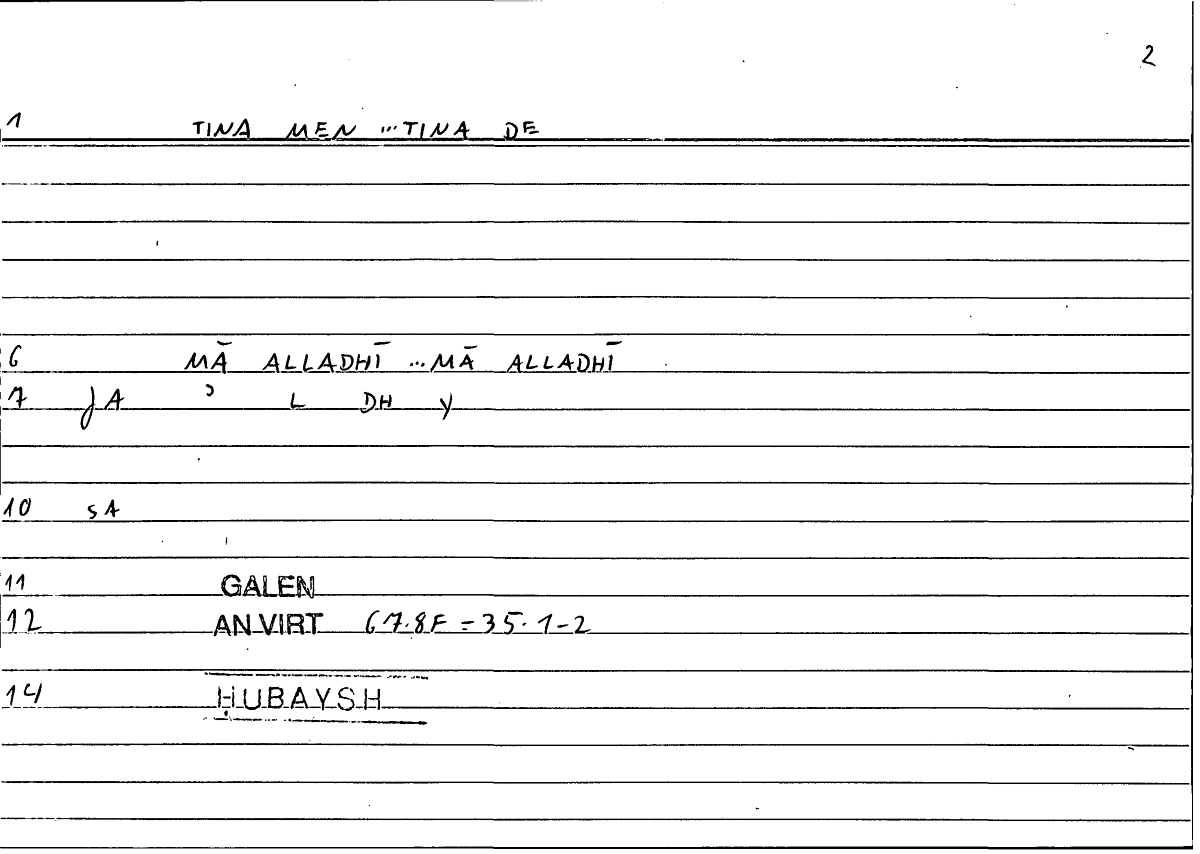 2
1 TINA MEN ...TINA DE
6 MĀ ALLADHĪ ...MĀ ALLADHĪ
7 JA ʾ L DH Y
10 SA
11 GALEN
12 AN VIRT 67.8F = 35.1-2
14 ḤUBAYSH